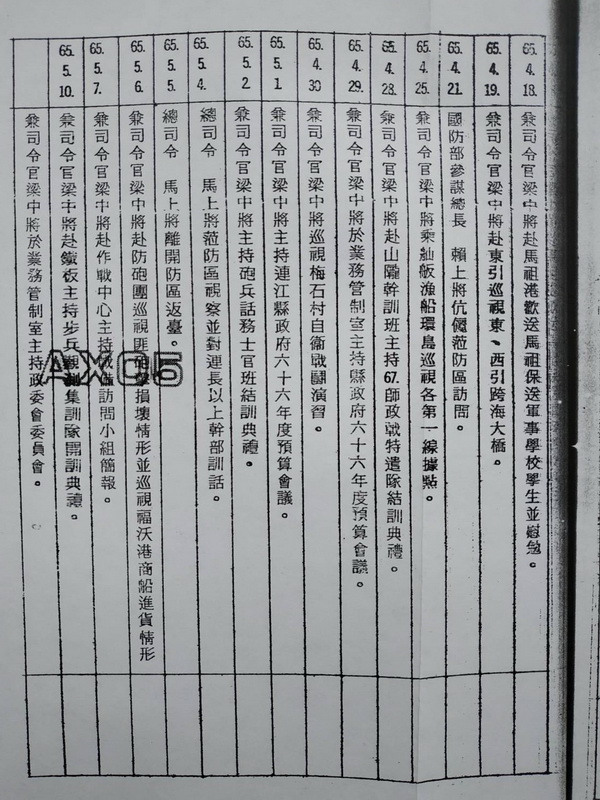 65.4.18. 兼司令官梁中將赴馬祖港歡送馬祖保送軍事學校學生並慰勉。
65.4.19. 兼司令官梁中將赴東引巡視東、西引跨海大橋。
65.4.21. 國防部參謀總長 賴上將伉儷蒞防區訪問。
65.4.25. 兼司令官梁中將乘舢舨漁船環島巡視各第一線據點。
65.4.28. 兼司令官梁中將赴山隴幹訓班主持67.師政戰特遣隊結訓典禮。
65.4.29. 兼司令官梁中將於業務管制室主持縣政府六十六年度預算會議。
65.4.30 兼司令官梁中將巡視梅石村自衛戰鬪演習。
65.5.1. 兼司令官梁中將主持連江縣政府六十六年度預算會議。
65.5.2. 兼司令官梁中將主持砲兵話務士官班結訓典禮。
65.5.4. 總司令 馬上將蒞防區視察並對連長以上幹部訓話。
65.5.5. 總司令 馬上將離開防區返臺。
65.5.6. 兼司令官梁中將赴防砲團巡視匪砲擊損壞情形並巡視福沃港商船進貨情形
65.5.7. 兼司令官梁中將赴作戰中心主持戰備訪問小組簡報。
65.5.10. 兼司令官梁中將赴鐵板主持步兵觀測集訓隊開訓典禮。
兼司令官梁中將於業務管制室主持政委會委員會。
AX05